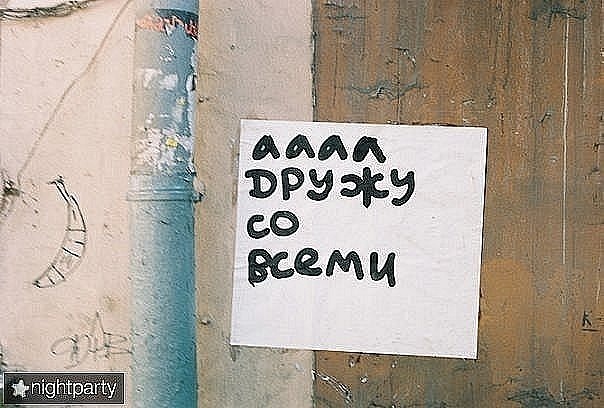 аааа
дружу
со
всеми
nightparty